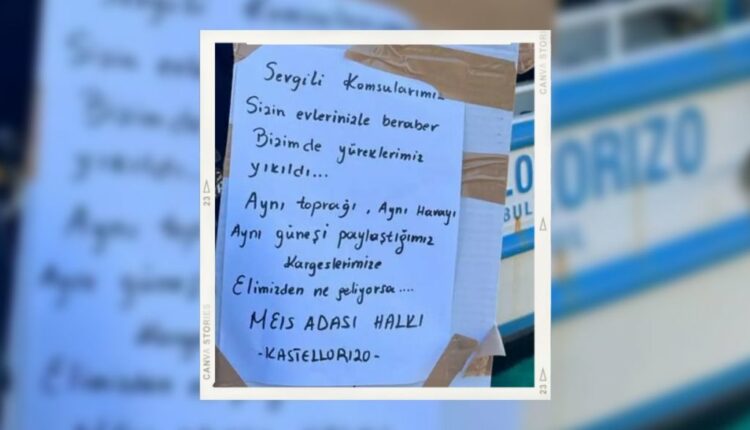 Sevgili Komsularımız
Sizin evlerinizle beraber
Bizimde yüreklerimiz
yıkıldı...
Aynı toprağı, Aynı Havayı
Aynı güneşi paylaştığımız
Kargeslerimize
Elimizden ne geliyorsa....
MEIS ADASI HALKI
-KASTELLORIZO-
CANVA STORIES
23
CANVA STORIES
23
LO
BUL
ORIZO